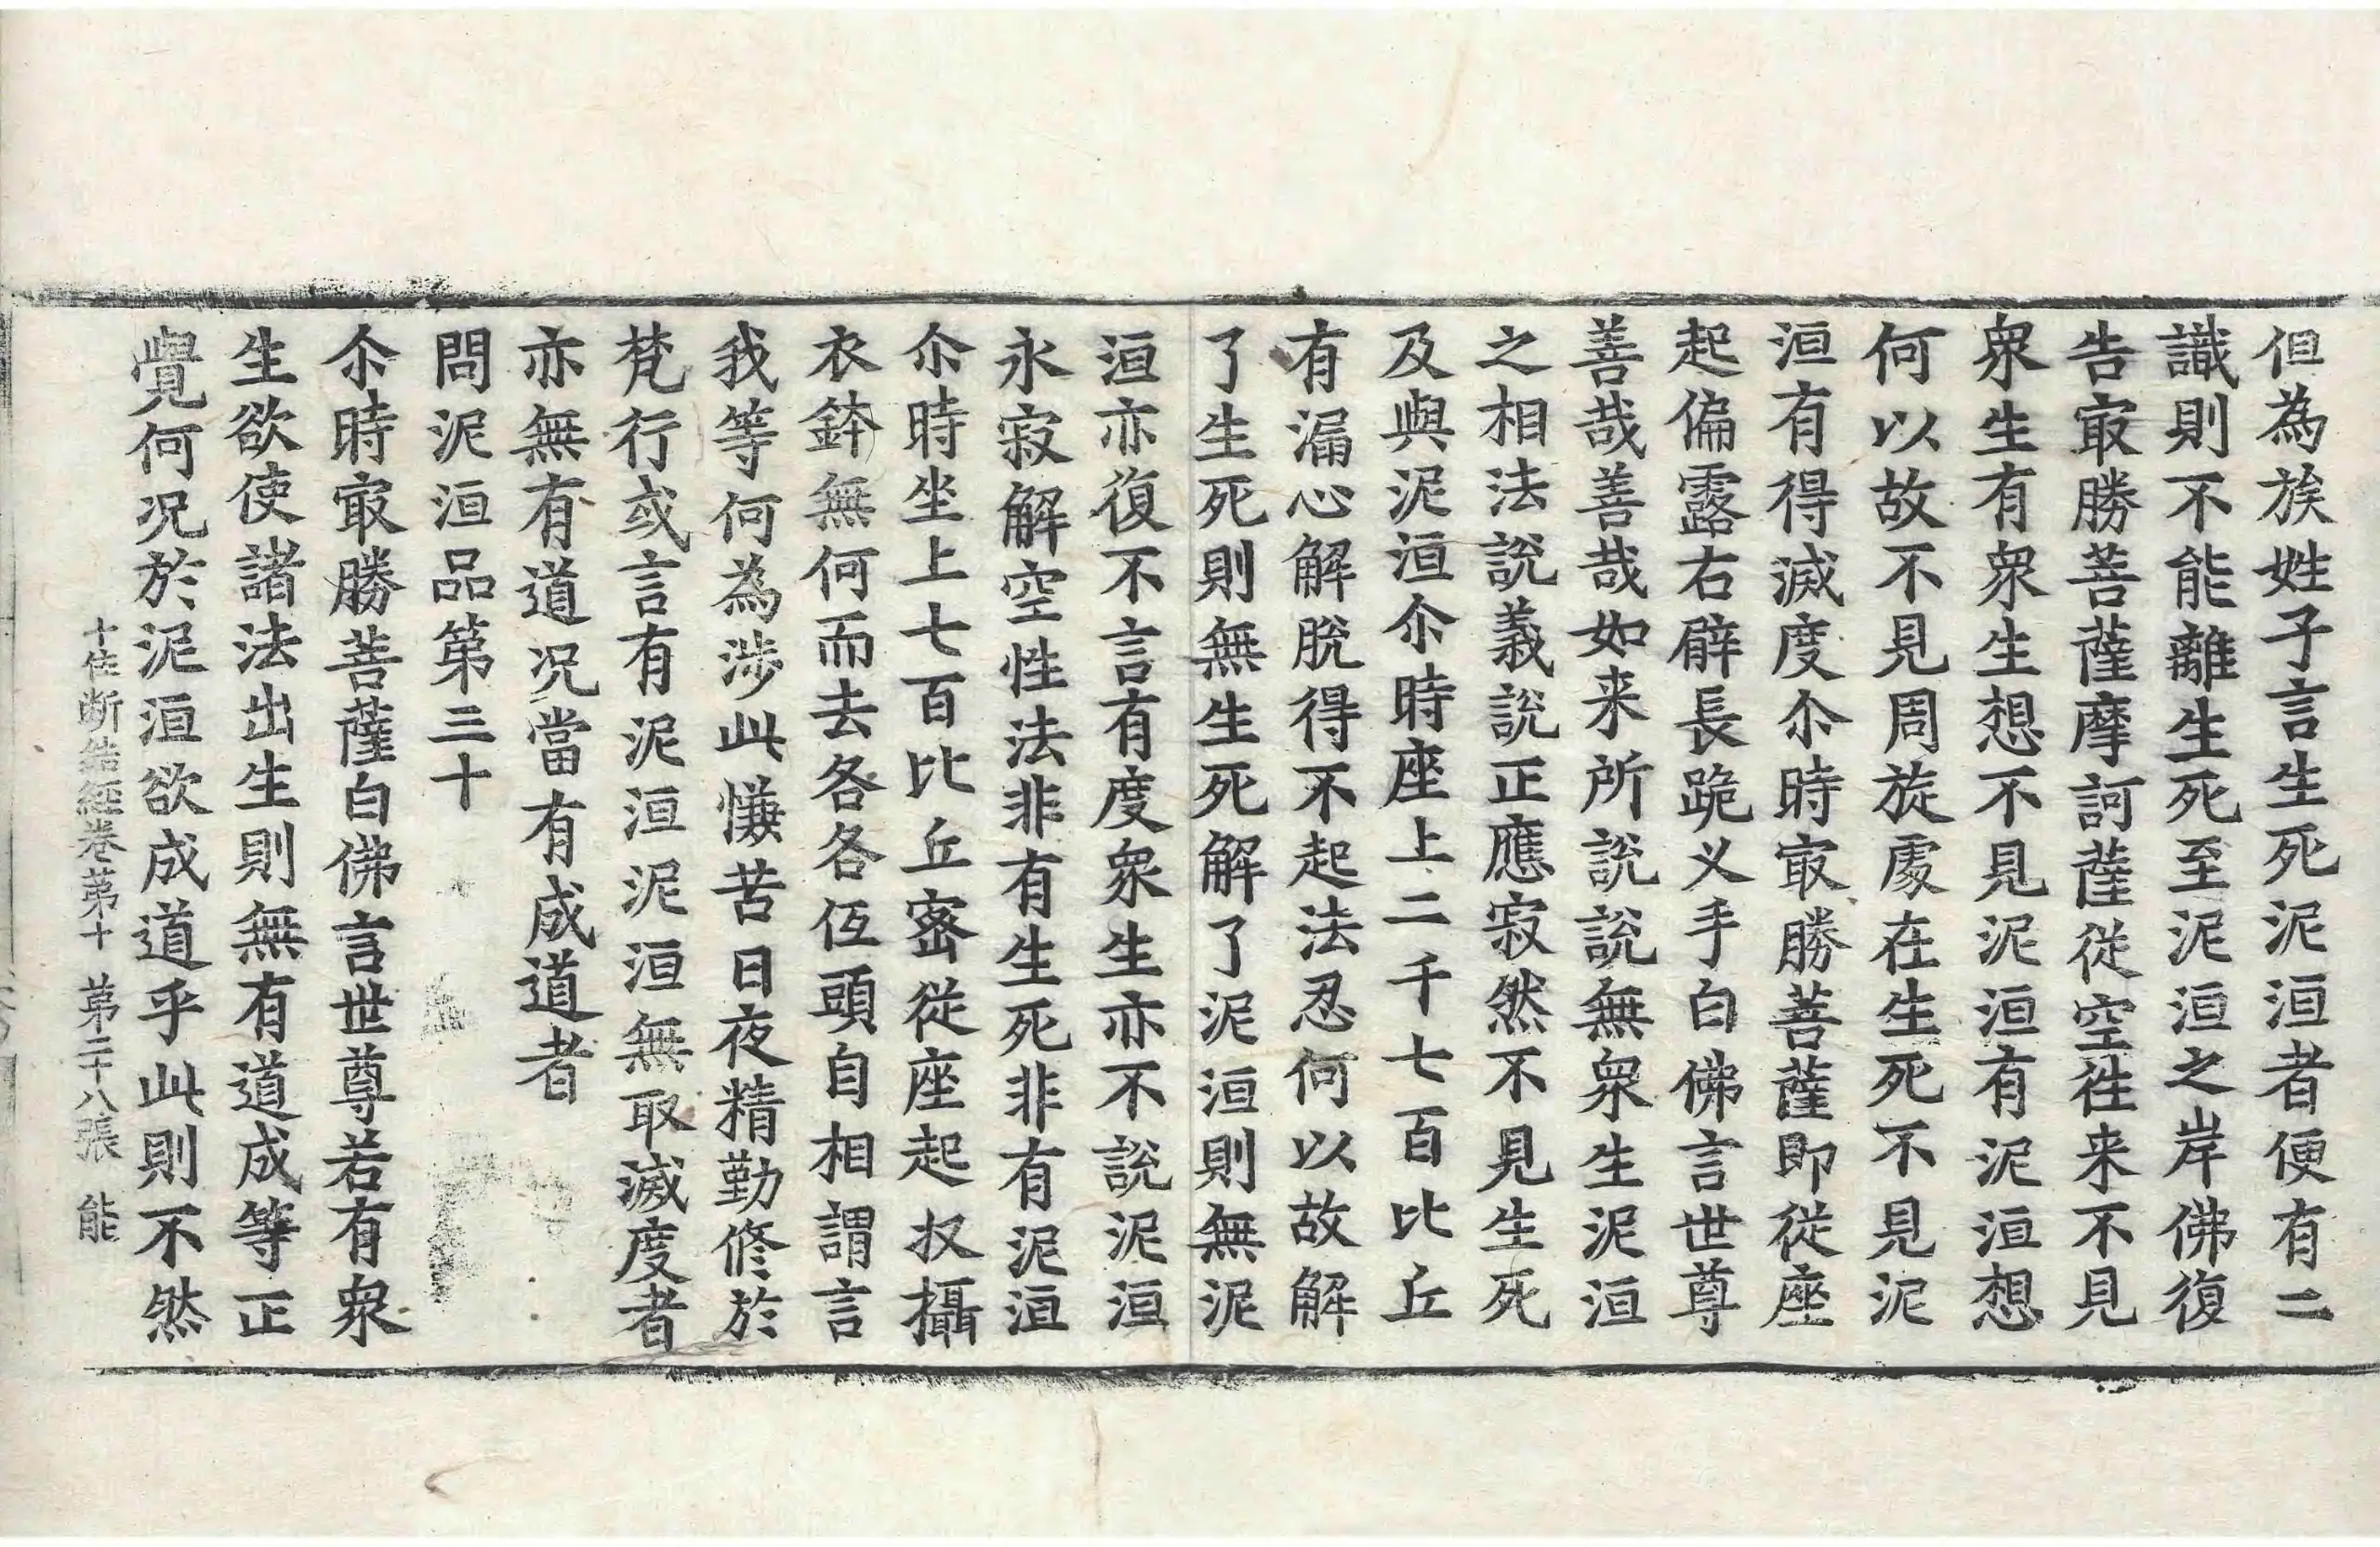 但為族姓子言生死泥洹者便有二
識則不能離生死至泥洹之岸佛復
告㝡勝菩薩摩訶薩從空徃来不見
衆生有衆生想不見泥洹有泥洹想
何以故不見周旋處在生死不見泥
洹有得滅度尒時㝡勝菩薩即從座
起偏露右臂長跪叉手白佛言世尊
善哉善哉如来所說說無衆生泥洹
之相法說義說正應寂然不見生死
及與泥洹尒時座上二千七百比丘
有漏心解脫得不起法忍何以故解
了生死則無生死解了泥洹則無泥
洹亦復不言有度衆生亦不說泥洹
永寂解空性法非有生死非有泥洹
尒時坐上七百比丘密從座起収攝
衣鉢無何而去各各低頭自相謂言
我等何為涉此慊苦日夜精勤修於
梵行或言有泥洹泥洹無取滅度者
亦無有道况當有成道者
問泥洹品第三十
尒時㝡勝菩薩白佛言世尊若有衆
生欲使諸法出生則無有道成等正
覺何况於泥洹欲成道乎此則不然
十住斷結經卷第十 第二十八張 能